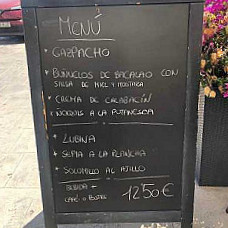 MENÚ
GAZPACHO
* BUÑUELOS DE BACALAO CON
SALSA DE MIEL Y MOSTAZA
* CREMA DE CALABACÍN
* ÑOQUIS A LA PUTANESCA
* LUBINA
* SEPIA A LA PLANCHA
* SOLOMILLO AL AJILLO
BEBIDA +
CAFÉ O POSTRE
12'50€